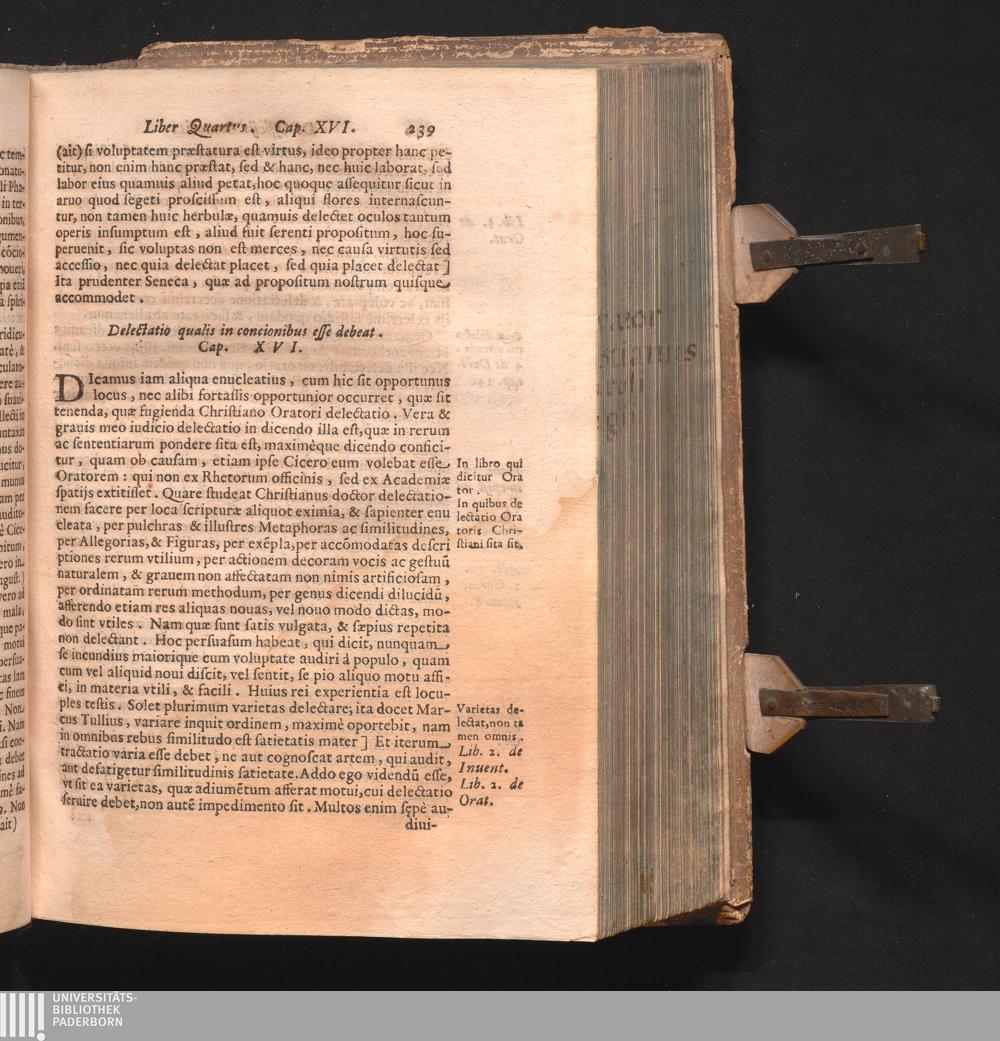 Liber Quartus. Cap. XVI. 239
(ait) si voluptatem præstatura est virtus, ideo propter hanc pe-
titur, non enim hanc præstat, sed & hanc, nec huic laborat, sed
labor eius quamuis aliud petat, hoc quoque assequitur sicut in
aruo quod segeti proscissum est, aliqui flores internascun-
tur, non tamen huic herbulæ, quamuis delectet oculos tantum
operis insumptum est, aliud fuit serenti propositum, hoc su-
peruenit, sic voluptas non est merces, nec causa virtutis sed
accessio, nec quia delectat placet, sed quia placet delectat]
Ita prudenter Seneca, quæ ad propositum nostrum quisque
accommodet.
Delectatio qualis in concionibus esse debeat.
Cap. XVI.
DIcamus iam aliqua enucleatius, cum hic sit opportunus
locus, nec alibi fortassis opportunior occurret, quæ sit
tenenda, quæ fugienda Christiano Oratori delectatio. Vera &
grauis meo iudicio delectatio in dicendo illa est, quæ in rerum
ac sententiarum pondere sita est, maximèque dicendo confici-
tur, quam ob causam, etiam ipse Cicero eum volebat esse
Oratorem: qui non ex Rhetorum officinis, sed ex Academiæ
spatijs extitisset. Quare studeat Christianus doctor delectatio-
nem facere per loca scripturæ aliquot eximia, & sapienter enu
cleata, per pulchras & illustres Metaphoras ac similitudines,
per Allegorias, & Figuras, per exẽpla, per accõmodatas descri
ptiones rerum vtilium, per actionem decoram vocis ac gestuũ
naturalem, & grauem non affectatam non nimis artificiosam,
per ordinatam rerum methodum, per genus dicendi dilucidũ,
afferendo etiam res aliquas nouas, vel nouo modo dictas, mo-
do sint vtiles. Nam quæ sunt satis vulgata, & sæpius repetita
non delectant. Hoc persuasum habeat, qui dicit, nunquam
se iucundius maiorique cum voluptate audiri à populo, quam
cum vel aliquid noui discit, vel sentit, se pio aliquo motu affi-
ci, in materia vtili, & facili. Huius rei experientia est locu-
ples testis. Solet plurimum varietas delectare; ita docet Mar-
cus Tullius, variare inquit ordinem, maximè oportebit, nam
in omnibus rebus similitudo est satietatis mater] Et iterum
tractatio varia esse debet, ne aut cognoscat artem, qui audit,
aut defatigetur similitudinis satietate. Addo ego videndũ esse,
vt sit ea varietas, quæ adiumẽtum afferat motui, cui delectatio
seruire debet, non autẽ impedimento sit. Multos enim sępè au-
diui-
In libro qui
dicitur Ora
tor.
In quibus de
lectatio Ora
toris Chri-
stiani sita sit.
Varietas de-
lectat, non ta
men omnis.
Lib. 2. de
Inuent.
Lib. 2. de
Orat.
UNIVERSITÄTS-
BIBLIOTHEK
PADERBORN